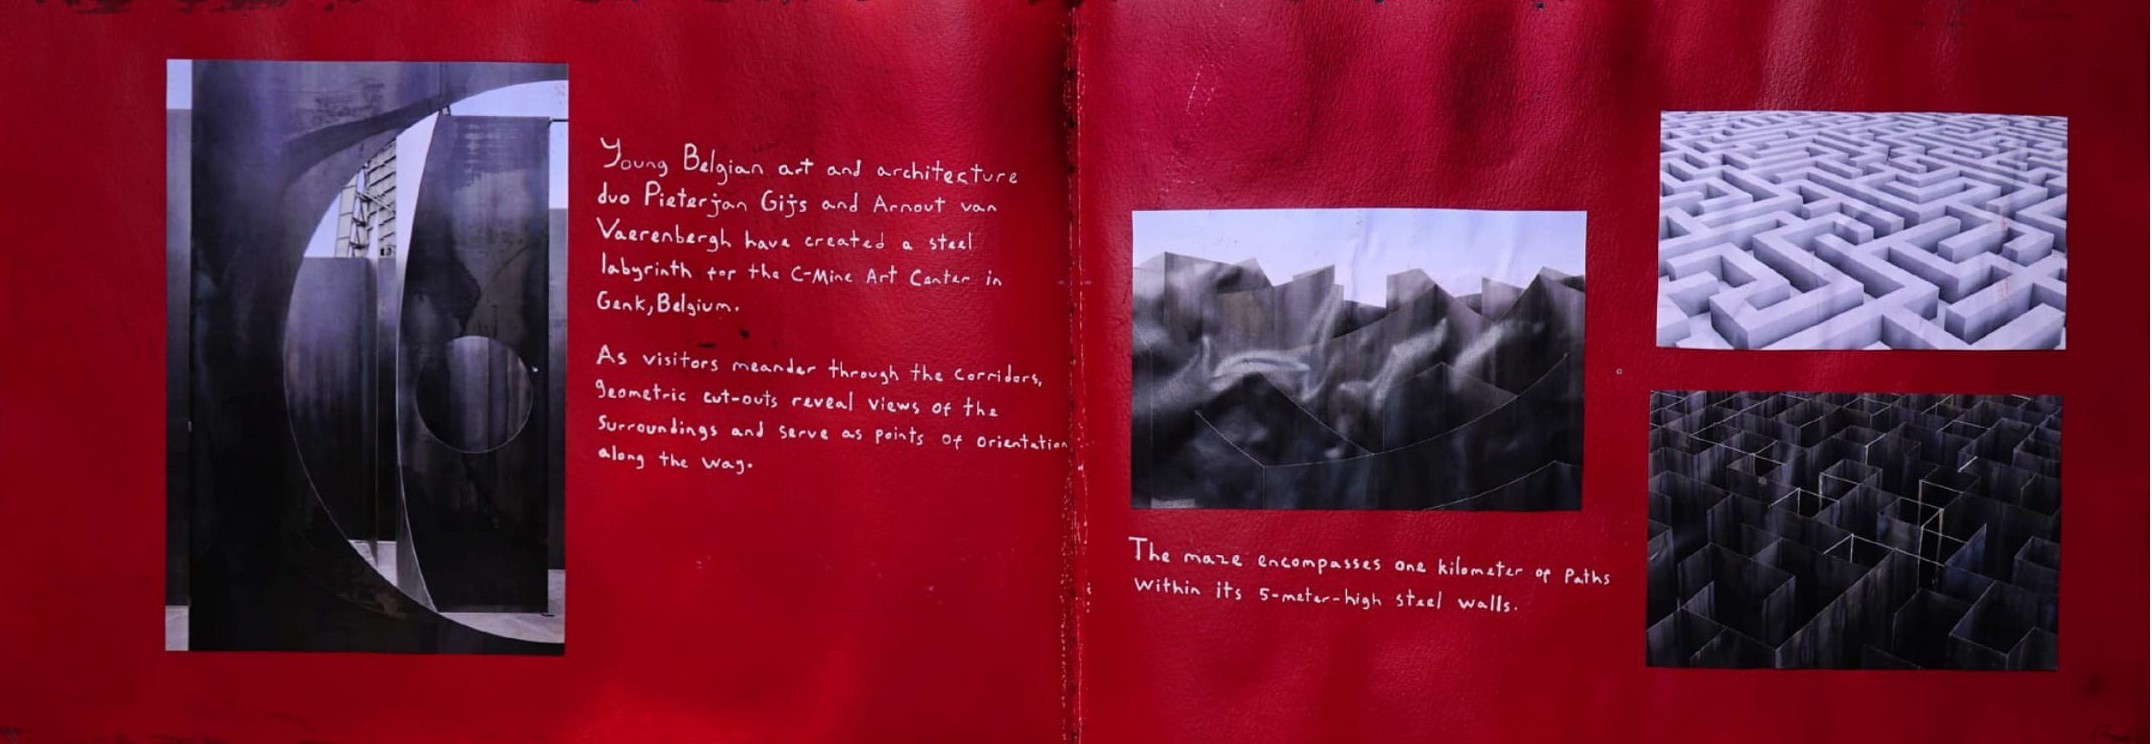 Young Belgian art and architecture
duo Pieterjan Gijs and Arnout van
Vaerenbergh have created a steel
labyrinth for the C-Mine Art Center in
Genk, Belgium.
As visitors meander through the Corridors,
geometric cut-outs reveal views of the
Surroundings and serve as points of orientation
along the way.
The maze encompasses one kilometer of Paths
Within its 5-meter-high steel walls.